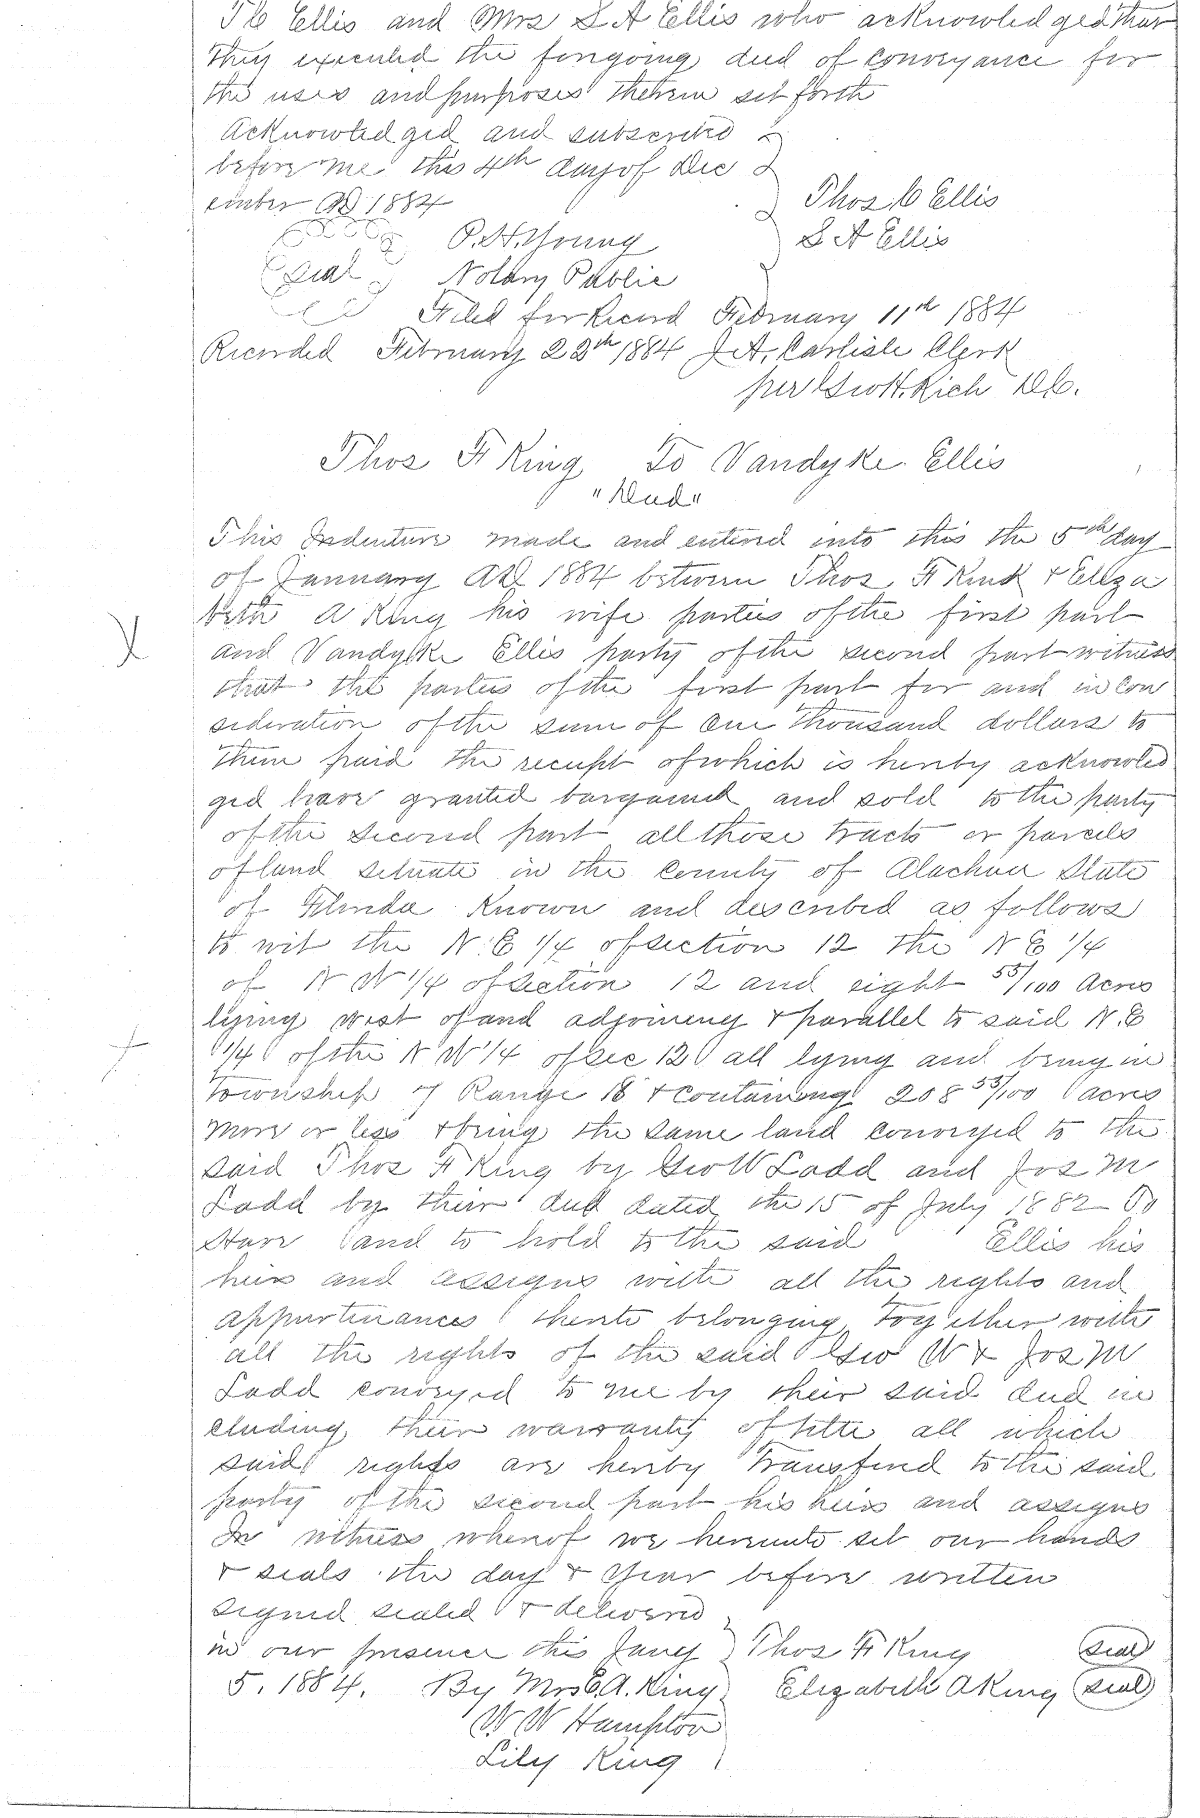 T C Ellis and Mrs S A Ellis who acknowledged that
they executed the forgoing deed of conveyance for
the uses and purposes therein set forth
Acknowledged and subscribed
before me this 4th day of Dec
ember AD 1884
Thos C Ellis
P. H. Young
S A Ellis
seal Notary Public
Filed for Record February 11th 1884
Recorded February 22th 1884 J. A. Carlisle Clerk
per Geo H. Rich D.C.
Thos F King To Vandyke Ellis
"Deed"
This Indenture made and entered into this the 5th day
of January AD 1884 between Thos F Kink & Eliza
beth A King his wife parties of the first part
and Vandyke Ellis party of the second part witness
that the parties of the first part for and in con
sideration of the sum of one thousand dollars to
them paid the receipt of which is hereby acknowled
ged have granted bargained and sold to the party
of the second part all those tracts or parcels
of land situate in the county of Alachua State
of Florida Known and described as follows
to wit the N. E 1/4 of section 12 the N E 1/4
of N W 1/4 of section 12 and eight 55/100 acres
lying west of and adjoining & parallel to said N. E
1/4 of the N W 1/4 of sec 12 all lying and being in
Township 7 Range 18 & containing 208 55/100 acres
more or less & being the same land conveyed to the
said Thos F King by Geo W Ladd and Jos M
Ladd by their deed dated the 15 of July 1882 To
Have and to hold to the said Ellis his
heirs and assigns with all the rights and
appurtenances thereto belonging together with
all the rights of the said Geo W & Jos M
Ladd conveyed to me by their said deed in
cluding their warranty of title all which
said rights are hereby transferred to the said
party of the second part his heirs and assigns
In witness whereof we hereunto set our hands
& seals the day & year before written
signed sealed & delivered
in our presence this Jany Thos F King seal
5. 1884. By Mrs E. A. King Elizabeth A King seal
W W Hampton
Lily King